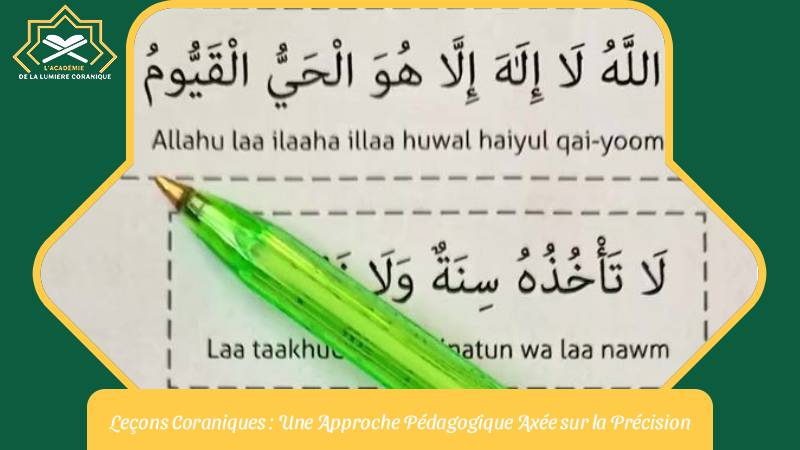 L'ACADÉMIE
DE LA LUMIÈRE CORANIQUE
اللَّهُ لَا إِلَٰهَ إِلَّا هُوَ الْحَيُّ الْقَيُّومُ
Allahu laa ilaaha illaa huwal haiyul qai-yoom
لَا تَأْخُذُهُ سِنَةٌ وَلَا
Laa wa laa nawm
Leçons Coraniques : Une Approche Pédagogique Axée sur la Précision